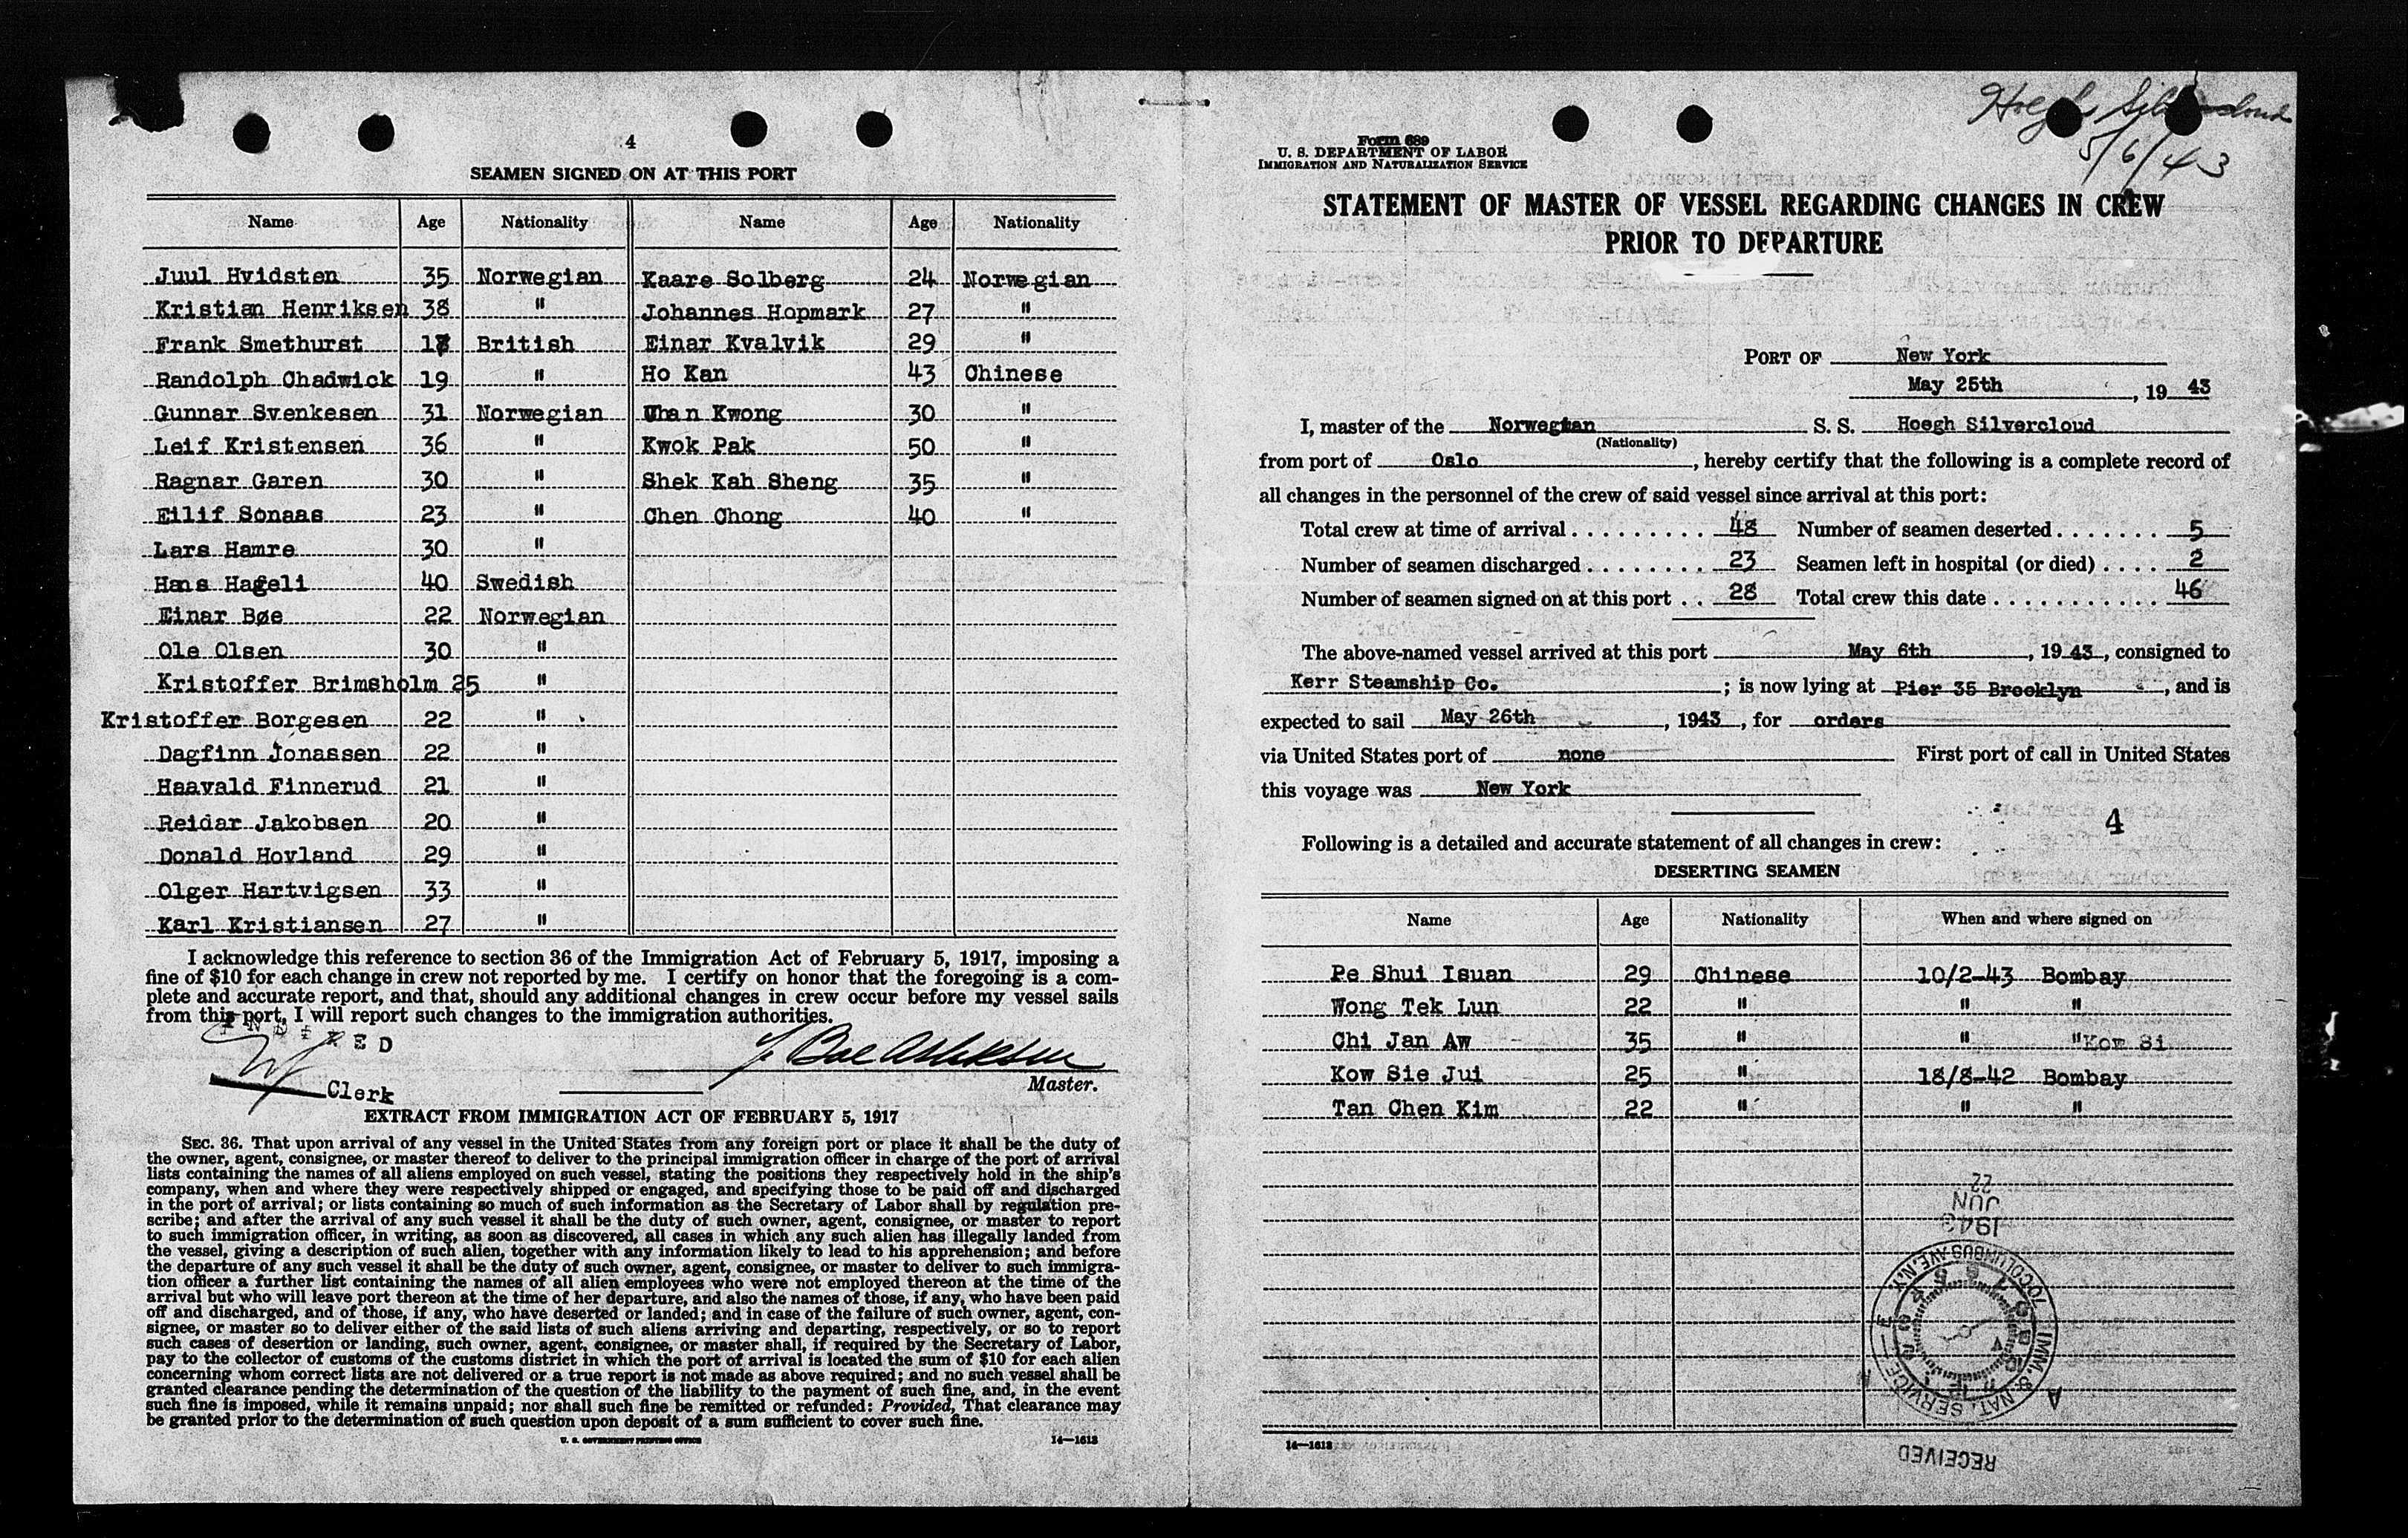 4
SEAMEN SIGNED ON AT THIS PORT
Name Age Nationality Name Age Nationality
Juul Hvidsten 35 Norwegian Kaare Solberg 24 Norwegian
Kristian Henriksen 38 " Johannes Hopmark 27 "
Frank Smethurst British Einar Kvalvik 29 "
Randolph Chadwick 19 " Ho Kan 43 Chinese
Gunnar Svenkesen 31 Norwegian Kwong 30 "
Leif Kristensen 36 " Kwok Pak 50 "
Ragnar Garen 30 " Shek Kah Sheng 35 "
Eilif Sonaas 23 " Chen Chong 40 "
Lars Hamre 30 "
Hans Hageli 40 Swedish
Einar Bøe 22 Norwegian
Ole Olsen 30 "
Kristoffer Brimsholm 25 "
Kristoffer Borgesen 22 "
Dagfinn Jonassen 22 "
Haavald Finnerud 21 "
Reidar Jakobsen 20 "
Donald Hovland 29 "
Olger Hartvigsen 33 "
Karl Kristiansen 27 "
I acknowledge this reference to section 36 of the Immigration Act of February 5, 1917, imposing a
fine of $10 for each change in crew not reported by me. I certify on honor that the foregoing is a com-
plete and accurate report, and that, should any additional changes in crew occur before my vessel sails
from this port, I will report such changes to the immigration authorities.
Master.
Clerk
EXTRACT FROM IMMIGRATION ACT OF FEBRUARY 5, 1917
SEC. 36. That upon arrival of any vessel in the United States from any foreign port or place it shall be the duty of
the owner, agent, consignee, or master thereof to deliver to the principal immigration officer in charge of the port of arrival
lists containing the names of all aliens employed on such vessel, stating the positions they respectively hold in the ship's
company, when and where they were respectively shipped or engaged, and specifying those to be paid off and discharged
in the port of arrival; or lists containing so much of such information as the Secretary of Labor shall by regulation pre-
scribe; and after the arrival of any such vessel it shall be the duty of such owner, agent, consignee, or master to report
to such immigration officer, in writing, as soon as discovered, all cases in which any such alien has illegally landed from
the vessel, giving a description of such alien, together with any information likely to lead to his apprehension; and before
the departure of any such vessel it shall be the duty of such owner, agent, consignee, or master to deliver to such immigra-
tion officer a further list containing the names of all alien employees who were not employed thereon at the time of the
arrival but who will leave port thereon at the time of her departure, and also the names of those, if any, who have been paid
off and discharged, and of those, if any, who have deserted or landed; and in case of the failure of such owner, agent, con-
signee, or master so to deliver either of the said lists of such aliens arriving and departing, respectively, or so to report
such cases of desertion or landing, such owner, agent, consignee, or master shall, if required by the Secretary of Labor,
pay to the collector of customs of the customs district in which the port of arrival is located the sum of $10 for each alien
concerning whom correct lists are not delivered or a true report is not made as above required; and no such vessel shall be
granted clearance pending the determination of the question of the liability to the payment of such fine, and, in the event
such fine is imposed, while it remains unpaid; nor shall such fine be remitted or refunded: Provided, That clearance may
be granted prior to the determination of such question upon deposit of a sum sufficient to cover such fine.
U. S. GOVERNMENT PRINTING OFFICE 14—1613
Hoegh Silvercloud
5/6/43
Form 689
U. S. DEPARTMENT OF LABOR
IMMIGRATION AND NATURALIZATION SERVICE
STATEMENT OF MASTER OF VESSEL REGARDING CHANGES IN CREW
PRIOR TO DEPARTURE
PORT OF New York
May 25th, 1943
I, master of the Norwegian S. S. Hoegh Silvercloud
(Nationality)
from port of Oslo, hereby certify that the following is a complete record of
all changes in the personnel of the crew of said vessel since arrival at this port:
Total crew at time of arrival . . . . . . . . . 48 Number of seamen deserted . . . . . . . 5
Number of seamen discharged . . . . . . . . 23 Seamen left in hospital (or died) . . . . 2
Number of seamen signed on at this port . . 28 Total crew this date . . . . . . . . . . . . 46
The above-named vessel arrived at this port May 6th, 1943, consigned to
Kerr Steamship Co.; is now lying at Pier 35 Brooklyn, and is
expected to sail May 26th, 1943, for orders
via United States port of none First port of call in United States
this voyage was New York
4
Following is a detailed and accurate statement of all changes in crew:
DESERTING SEAMEN
Name Age Nationality When and where signed on
Pe Shui Isuan 29 Chinese 10/2-43 Bombay
Wong Tek Lun 22 " " "
Chi Jan Aw 35 " " "Kow Si
Kow Sie Jui 25 " 18/8-42 Bombay
Tan Chen Kim 22 " " "
22
JUN
1943
IMM. & NAT. SERVICE
70 COLUMBUS AVE. N.Y.
RECEIVED
14—1613